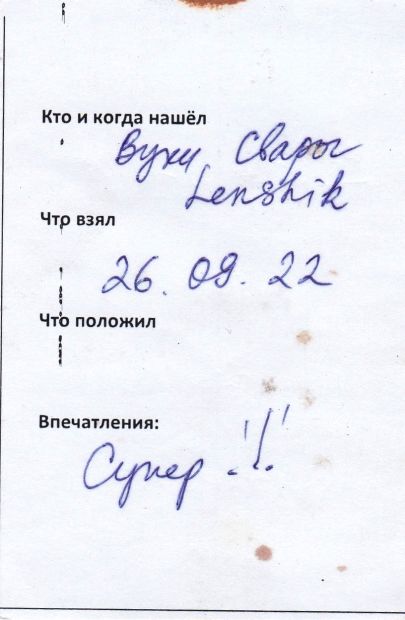 Кто и когда нашёл
Вуки Свары
Lenshik
Что взял
26.09.22
Что положил
Впечатления:
Супер !!!